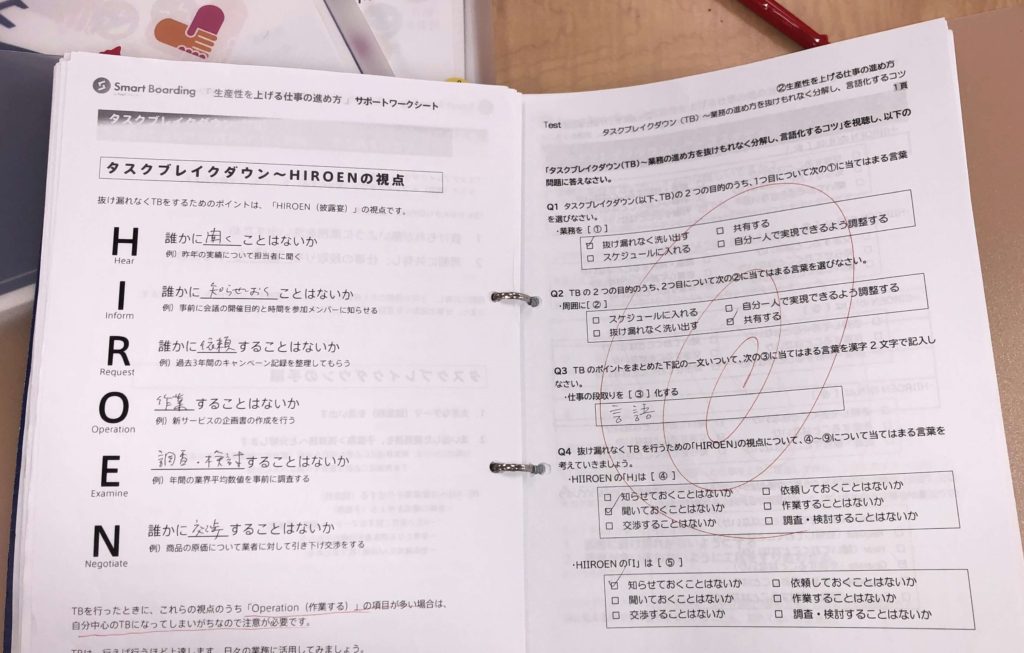 Smart Boarding 「生産性を上げる仕事の進め方」サポートワークシート
タスクブレイクダウン
タスクブレイクダウン～HIROENの視点
抜け漏れなくTBをするためのポイントは、「HIROEN（披露宴）」の視点です。
H 誰かに 聞く ことはないか
Hear 例）昨年の実績について担当者に聞く
I 誰かに 知らせておく ことはないか
Inform 例）事前に会議の開催目的と時間を参加メンバーに知らせる
R 誰かに 依頼 することはないか
Request 例）過去3年間のキャンペーン記録を整理してもらう
O 作業 することはないか
Operation 例）新サービスの企画書の作成を行う
E 調査・検討 することはないか
Examine 例）年間の業界平均数値を事前に調査する
N 誰かに 交渉 することはないか
Negotiate 例）商品の原価について業者に対して引き下げ交渉をする
TBを行ったときに、これらの視点のうち「Operation（作業する）」の項目が多い場合は、
自分中心のTBになってしまいがちなので注意が必要です。
TBは、行えば行うほど上達します。日々の業務に活用してみましょう。
②生産性を上げる仕事の進め方
Test タスクブレイクダウン（TB）～業務の進め方を抜けもれなく分解し、言語化するコツ
1頁
「タスクブレイクダウン(TB)～業務の進め方を抜けもれなく分解し、言語化するコツ」を視聴し、以下の
問題に答えなさい。
Q1 タスクブレイクダウン(以下、TB)の2つの目的のうち、1つ目について次の①に当てはまる言葉
を選びなさい。
・業務を［ ① ］
☑ 抜け漏れなく洗い出す □ 共有する
□ スケジュールに入れる □ 自分一人で実現できるよう調整する
Q2 TBの2つの目的のうち、2つ目について次の②に当てはまる言葉を選びなさい。
・周囲に［ ② ］
□ スケジュールに入れる □ 自分一人で実現できるよう調整する
□ 抜け漏れなく洗い出す ☑ 共有する
Q3 TBのポイントをまとめた下記の一文いついて、次の③に当てはまる言葉を漢字2文字で記入し
なさい。
・仕事の段取りを［ ③ ］化する
言語
Q4 抜け漏れなくTBを行うための「HIROEN」の視点について、④～⑨について当てはまる言葉を
考えていきましょう。
・HIIROENの「H」は［ ④ ］
□ 知らせておくことはないか □ 依頼しておくことはないか
☑ 聞いておくことはないか □ 作業することはないか
□ 交渉することはないか □ 調査・検討することはないか
・HIIROENの「I」は［ ⑤ ］
☑ 知らせておくことはないか □ 依頼しておくことはないか
□ 聞いておくことはないか □ 作業することはないか
□ 交渉することはないか □ 調査・検討することはないか